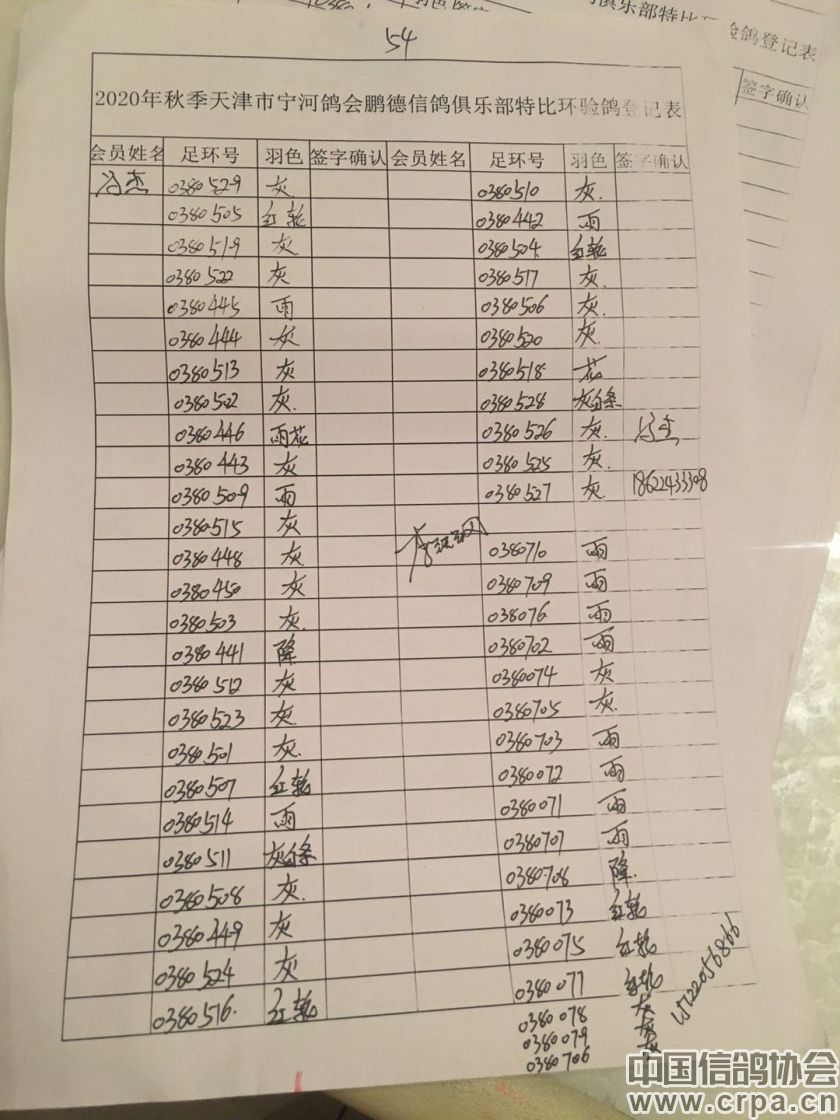 54
2020年秋季天津市宁河鸽会鹏德信鸽俱乐部特比环验鸽登记表
会员姓名 足环号 羽色 签字确认 会员姓名 足环号 羽色 签字确认
冯杰 0380529 灰 0380510 灰
0380505 红轮 0380442 雨
0380519 灰 0380504 红轮
0380522 灰 0380517 灰
0380445 雨 0380506 灰
0380444 灰 0380520 灰
0380513 灰 0380518 花
0380502 灰 0380528 灰白条
0380446 雨花 0380526 灰 冯杰
0380443 灰 0380525 灰
0380509 雨 0380527 灰 18622433308
0380515 灰
0380448 灰 0380710 雨
0380450 灰 0380709 雨
0380503 灰 038076 雨
0380441 降 0380702 雨
0380512 灰 0380074 灰
0380523 灰 0380705 灰
0380501 灰 0380703 雨
0380507 红轮 0380072 雨
0380514 雨 0380071 雨
0380511 灰白条 0380707 雨
0380508 灰 0380708 降
0380449 灰 0380073 红轮
0380524 灰 0380075 红轮
0380516 红轮 0380077 红轮
0380078 灰
0380079 灰
0380706 灰
15122056866
鸽登记表
签字确认
中国信鸽协会
www.crpa.cn